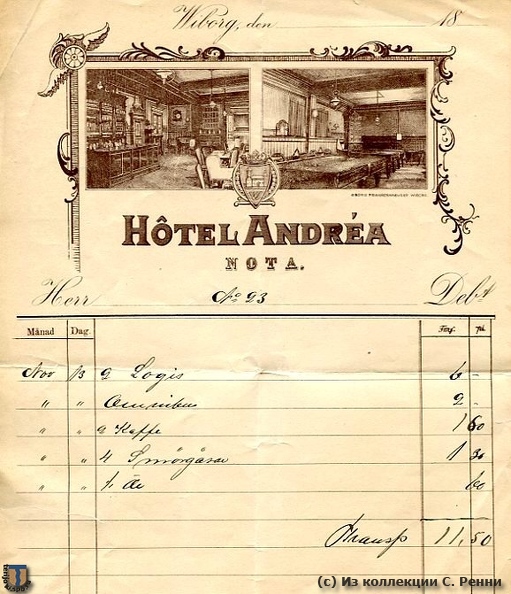 Wiborg, den 18
HÔTEL ANDRÉA
NOTA.
Herr No 23 Debt
Månad Dag. Fmf. pi.
Nov 13 2 Logis 6 -
" " Omnibus 2 -
" " 2 Kaffe 1 60
" " 4 Smörgåsar 1 30
" " 1/1 Öl 60
Transp 11,50
(c) Из коллекции С. Ренни